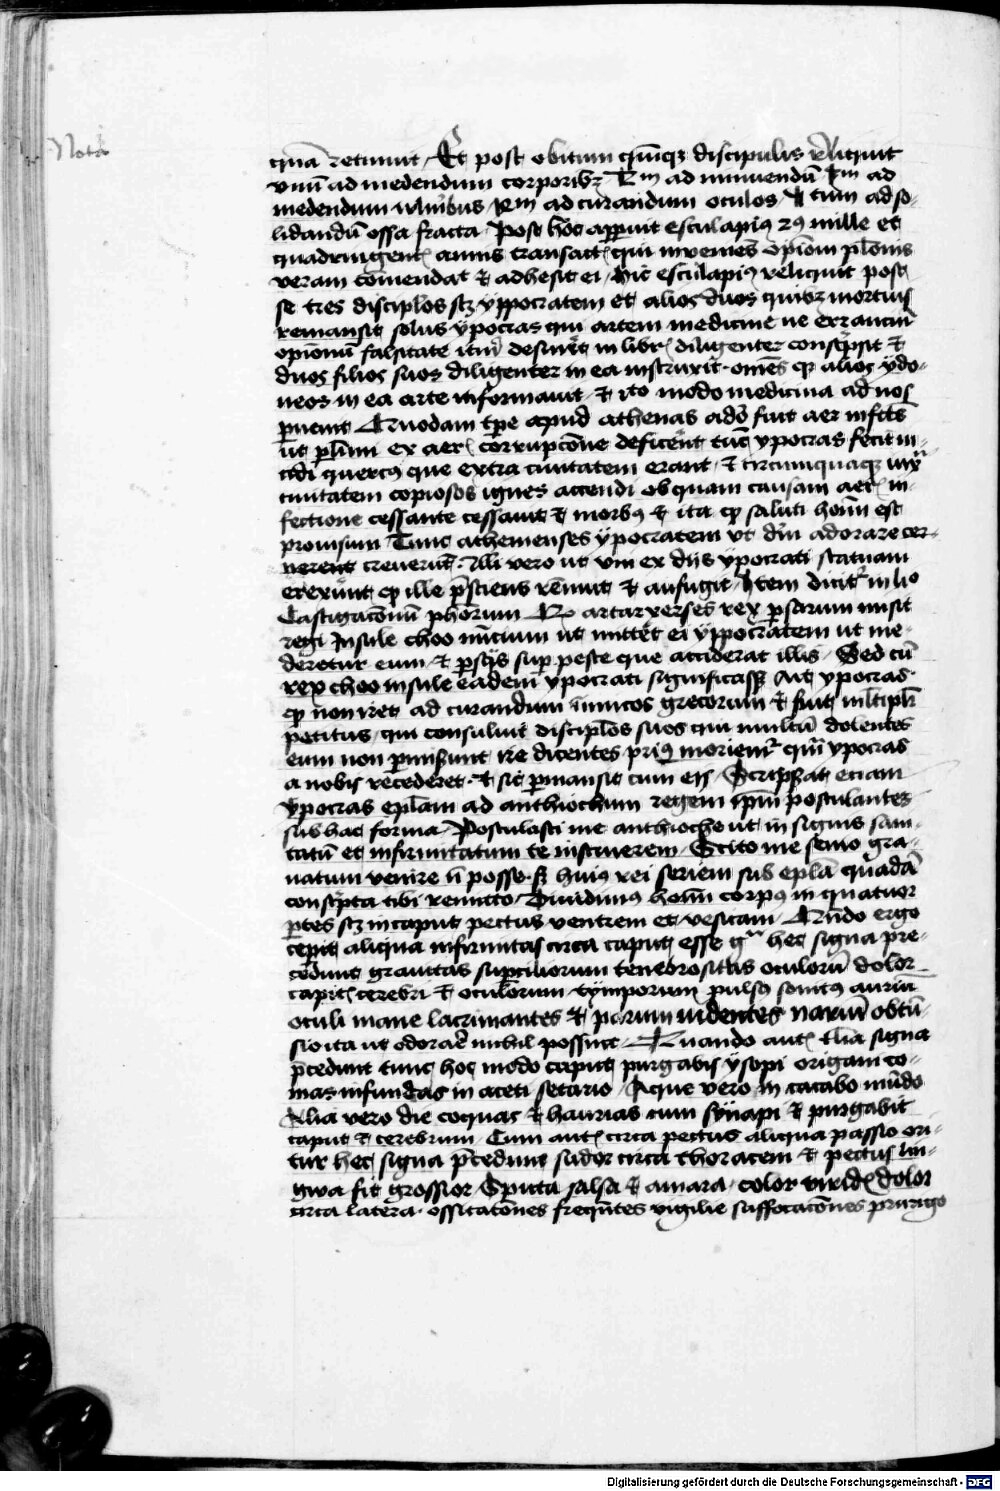 Nota
quā retinuit Et post obitum quīqꝫ discipulis reliquit
vnū ad medendum corporibꝫ ad minuendū ad
medendum ad curandum oculos ad so-
lidandū ossa fracta Post hoc apparuit esculapiꝰ mille et
annis transact qui inveniens opiōm platonis
veram cōmendat et adhesit ei hic esculapiꝰ reliquit post
se tres disciplōs scꝫ yppocratem et alios duos quibꝫ mortuis
remansit solus ypocras qui artem medicine ne errancium
opionū falsitate desineret in libr diligenter conscripsit et
duos filios suos diligenter in ea instruxit omēs qꝫ alios ydo-
neos in ea arte informauit et isto modo medicina ad nos
puenit Quodam tpe apud athenas adō fuit aer infcts
ut plimi ex aer corrupcōne deficerēt tūc ypocras fecit in-
cidi quercꝰ que extra ciuitatem erant et circumquaqꝫ iux
ciuitatem copiosos ignes accendi ob quam causam aer in-
fectione cessante cessauit et morbꝰ et ita qꝫ saluti hoīm est
prouisum Tunc athenienses ypocratem ut dm̄ adorare cer-
uerent creuerūt Illi vero ut vni ex diis ypocrati statuam
erexūnt qꝫ ille psciens rēnuit et aufugit Item dicitꝰ in lio
Castigacōnū phorum artaxerses rex psarum misit
regi Insule choo nūcium ut mittēt ei yppocratem ut me-
deretur eum et psis sup peste que acciderat illis Sed cū
rex choo insule eadem ypocrati significasset ait ypocras
qꝫ non iret ad curandum inimicos grecorum et fuit
petitus qui consuluit disciplōs suos qui multū dolentes
eum non pmiserunt ire dicentes priꝰ moriemꝰ qm ypocras
a nobis recederet et sic pmansit cum eis Scripsat eciam
ypocras eplam ad anthiochum regem ipm postulantes
sub hac forma Postulasti me anthioche ut in signis sani-
tatū et infirmitatum te instruerem Scito me senio gra-
uatum venire nō posse sꝫ huiꝰ rei seriem sub eplā quadā
conscripta tibi remitto Diuidimꝰ hoīm corpꝰ in quatuor
ptes scꝫ in caput pectus ventrem et vesicam Qndo ergo
cepit aliqua infirmitas circa caput esse hec signa pre-
cedunt grauitas supciliorum tenebrositas oculorū dolor
capit cerebri et oculorum tymporum pulsꝰ sonitus auriū
oculi mane lacrimantes et parum uidentes nariū obtū-
sio ita ut odorare nichil possint Quando aut talia signa
pcedunt tunc hoc modo caput purgabis ysopi origani co-
mas infundas in aceti setario Aque vero in cacabo mūdo
Alia vero die coquas et haurias cum synapi et purgabit
caput et cerebrum Cum aut circa pectus aliqua passio ori-
tur hec signa pcedunt sudor circa thoracem et pectus lin-
gwa fit grossior Sputa salsa et amara color virid dolor
circa latera ossitatōnes frequētes vigilie suffocatōnes prurigo
Digitalisierung gefördert durch die Deutsche Forschungsgemeinschaft - DFG